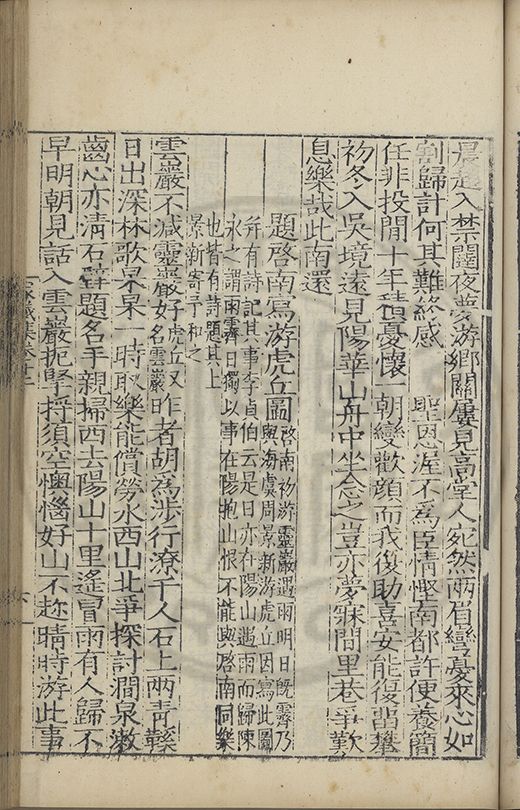 晨趨入禁闥夜夢游鄉關屢見高堂人宛然兩眉彎憂來心如
割歸計何其難終感　聖恩渥不爲臣情慳南都許便養簡
任非投閒十年積憂懷一朝變歡顔而我復助喜安能復留攀
初冬入吴境遠見陽華山舟中坐念之豈亦夢寐間里巷爭歎
息樂哉此南還
題啓南寫游虎丘圖
啓南初游靈巖遇雨明日旣霽乃
與海虞周景新游虎丘因寫此圖
并有詩記其事李貞伯云是日亦在陽山遇雨而歸陳
永之謂雨霽日獨以事在陽抱山恨不能與啓南同樂
也皆有詩題其上
景新寄予和之
雲巖不減靈巖好
虎丘又
名雲巖
昨者胡爲涉行潦千人石上兩青鞵
日出深林歌杲杲一時取樂能償勞水西山北爭探討澗泉漱
齒心亦清石壁題名手親掃西去陽山十里遙冒雨有人歸不
早明朝見話入雲巖扼擥捋須空懊惱好山不趂晴時游此事